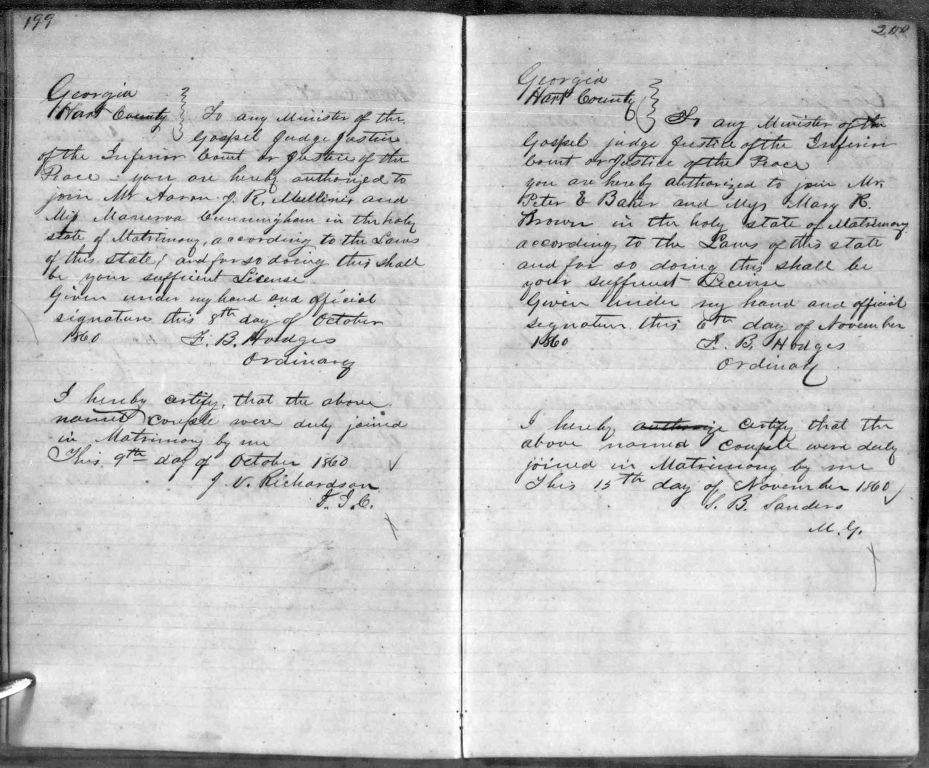 199
Georgia
Hart County } To any Minister of the
Gospel Judge Justice
of the Inferior Court or Justice of the
Peace you are hereby authorized to
join Mr Aaron J. R. and
Miss Manerva Cunningham in the holy
state of Matrimony, according to the Laws
of this state, and for so doing this shall
be your sufficient License
Given under my hand and official
signature this 8th day of October
1860 F. B. Hodges
Ordinary
I hereby certify, that the above
named Couple were duly joined
in Matrimony by me
This 9th day of October 1860
J. V. Richardson
J. I. C.
200
Georgia
Hart County } To any Minister of the
Gospel judge Justice of the Inferior
Court or Justice of the Peace
you are hereby authorized to join Mr.
Peter E Baker and Mrs Mary H.
Brown in the holy state of Matrimony
according, to the Laws of this state
and for so doing this shall be
your License
Given under my hand and official
signature this 6th day of November
1860 F. B. Hodges
Ordinary
I hereby authorize certify that the
above named Couple were duly
joined in Matrimony by me
This 15th day of November 1860
S. B. Sanders
M. G.